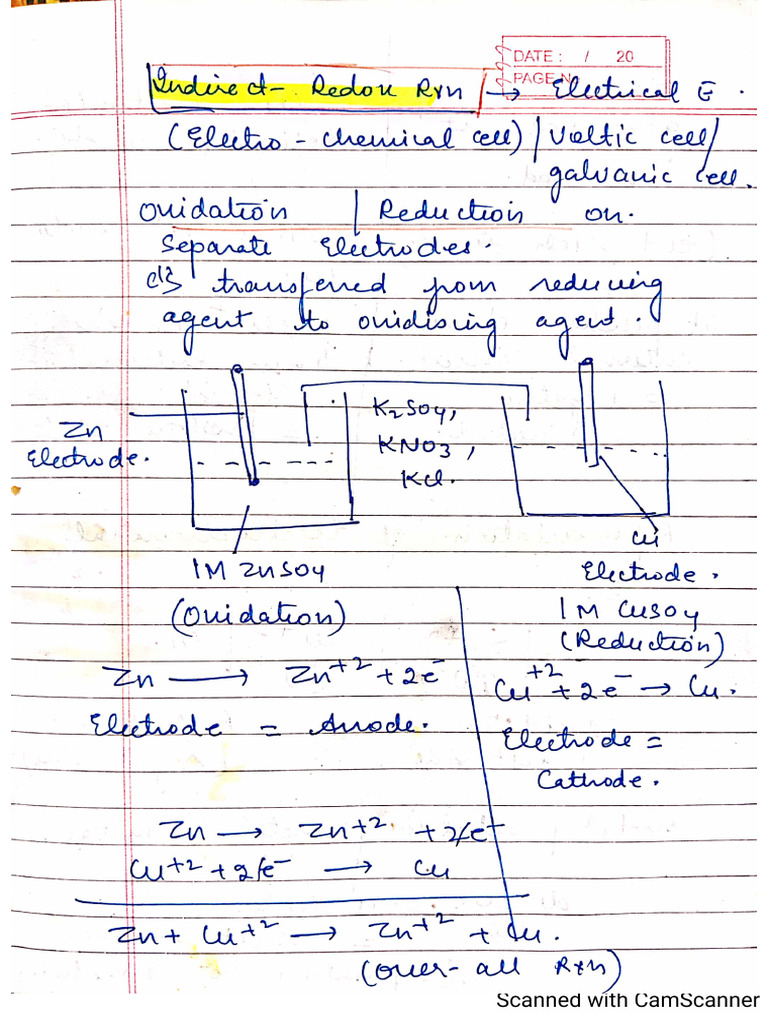 DATE: / 20
PAGE N
Indirect- Redox Rxn → Electrical E.
(Electro - chemical cell) / Voltic cell/
galvanic cell.
Oxidation / Reduction on.
Separate Electrodes.
e's transferred from reducing
agent to oxidising agent.
K2SO4,
KNO3,
KCl.
Zn
Electrode.
Cu
Electrode.
1M ZnSO4
1M CuSO4
(Oxidation)
(Reduction)
Zn ⟶ Zn+2 + 2e-
Cu+2 + 2e- → Cu.
Electrode = Anode.
Electrode =
Cathode.
Zn → Zn+2 + 2e-
Cu+2 + 2e- ⟶ Cu
Zn + Cu+2 → Zn+2 + Cu.
(Over-all Rxn)
Scanned with CamScanner